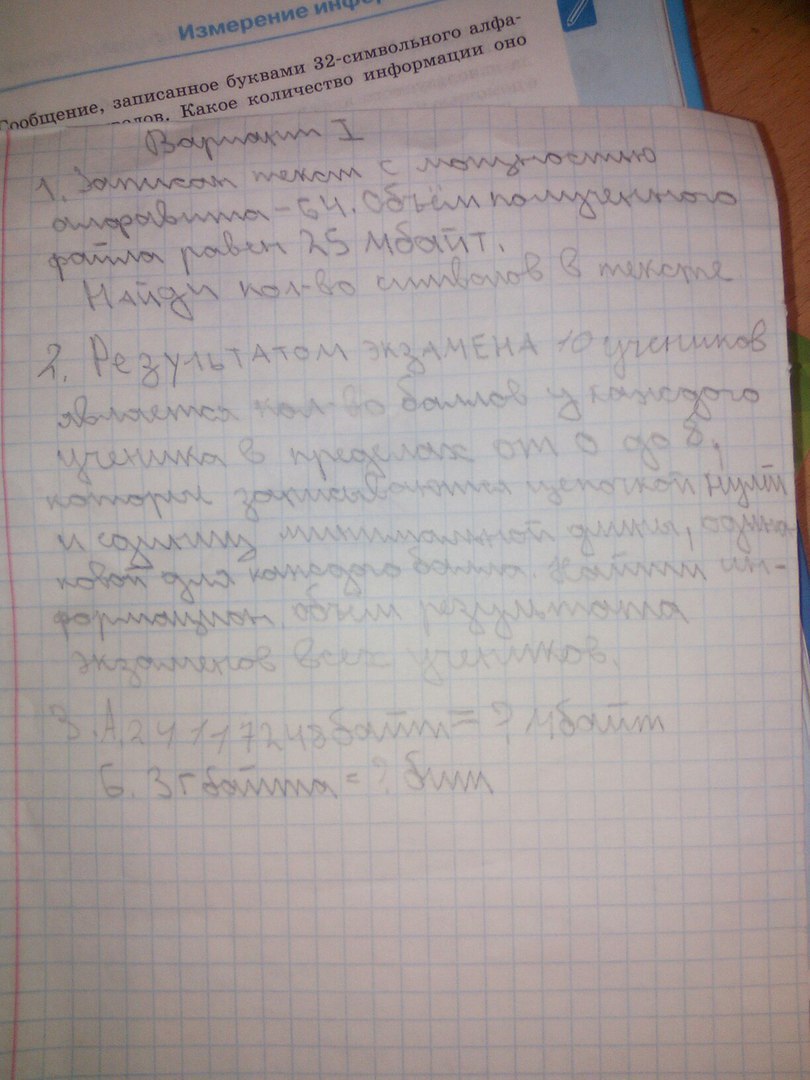 Измерение инфор
Сообщение, записанное буквами 32-символьного алфа-
Какое количество информации оно
Вариант I
1. Записан текст с мощностью
алфавита - 64. Объём полученного
файла равен 25 Мбайт.
Найди кол-во символов в тексте
2. Результатом экзамена 10 учеников
является кол-во баллов у каждого
ученика в пределах от 0 до 8,
которые записываются цепочкой нулей
и единиц минимальной длины, одина-
ковой для каждого балла. Найти ин-
формацион. объём результата
экзаменов всех учеников.
3. А. 24117248 байт = ? Мбайт
Б. 3 Гбайта = ? бит